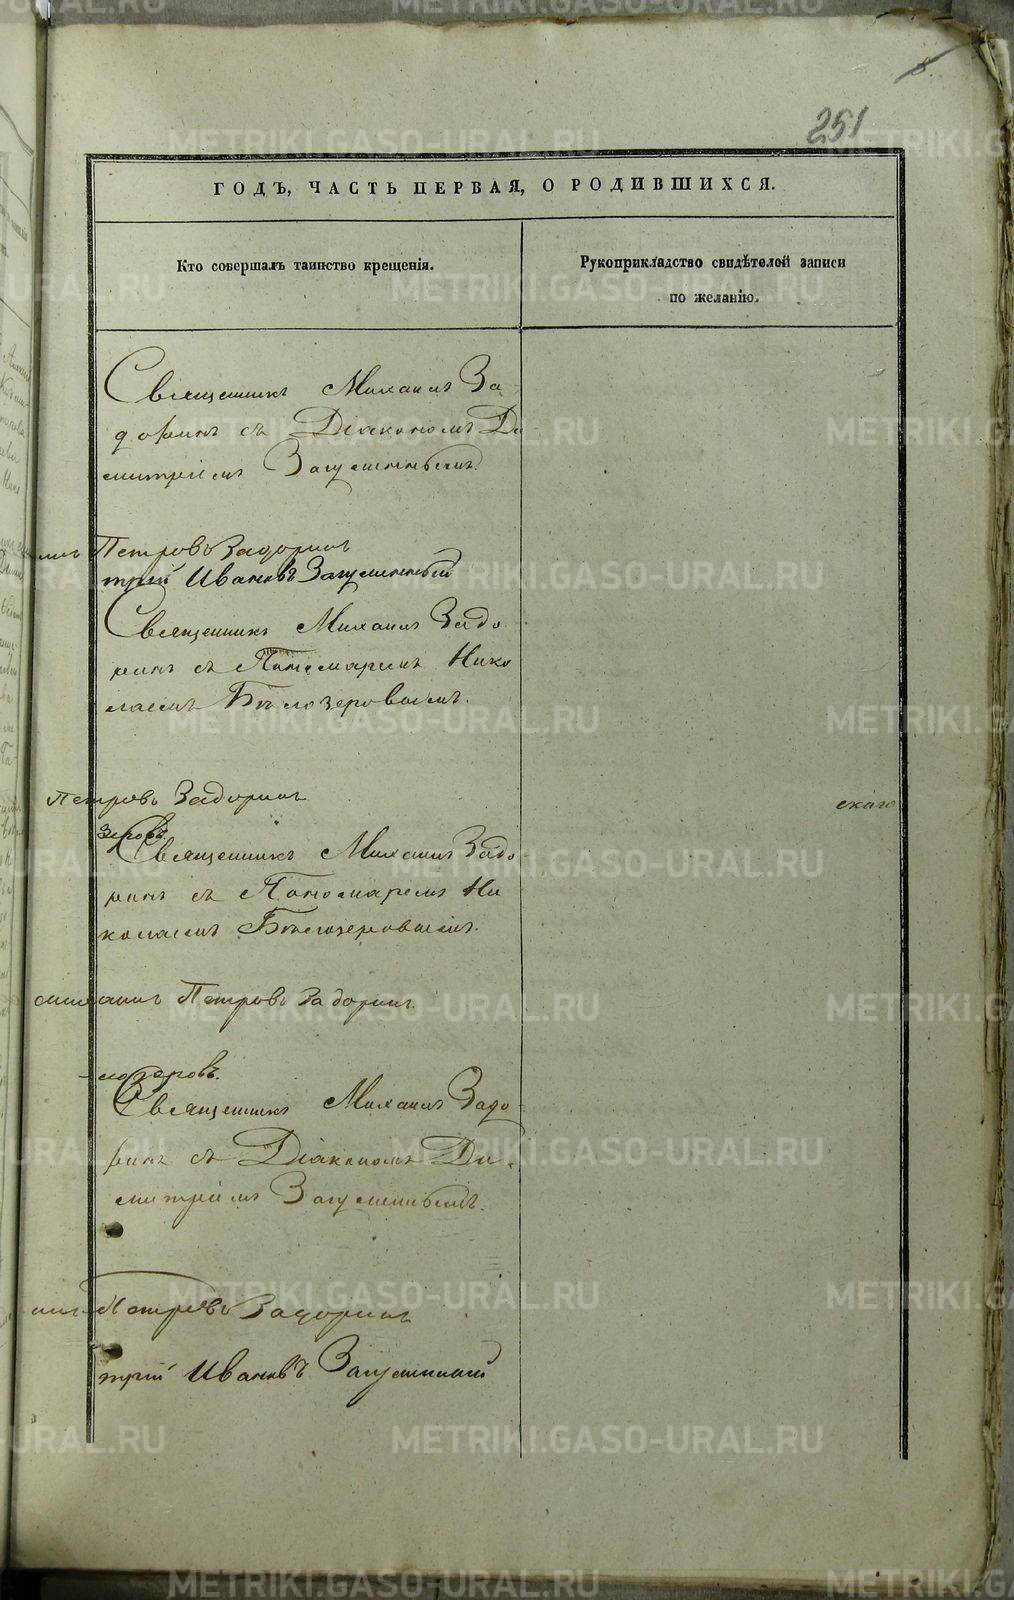 8.
251
ГОДЪ, ЧАСТЬ ПЕРВАЯ, О РОДИВШИХСЯ.
Кто совершалъ таинство крещенія.
Рукоприкладство свидѣтелей записи
по желанію.
Священникъ Михаилъ За
доринъ съ Діакономъ Ди
митріемъ Загуменнымъ.
илъ Петровъ Задоринъ
трій Ивановъ Загуменный
Священникъ Михаилъ Задо
ринъ съ Пономаремъ Нико
лаемъ Бѣлозеровымъ.
Петровъ Задоринъ
скаго
зеровъ.
Священникъ Михаилъ Задо
ринъ съ Пономаремъ Ни
колаемъ Бѣлозеровымъ.
Петровъ Задоринъ.
лозеровъ.
Священникъ Михаилъ Задо
ринъ съ Діакономъ Ди
митріемъ Загуменнымъ.
илъ Петровъ Задоринъ
трій Ивановъ Загуменный
METRIKI.GASO-URAL.RU